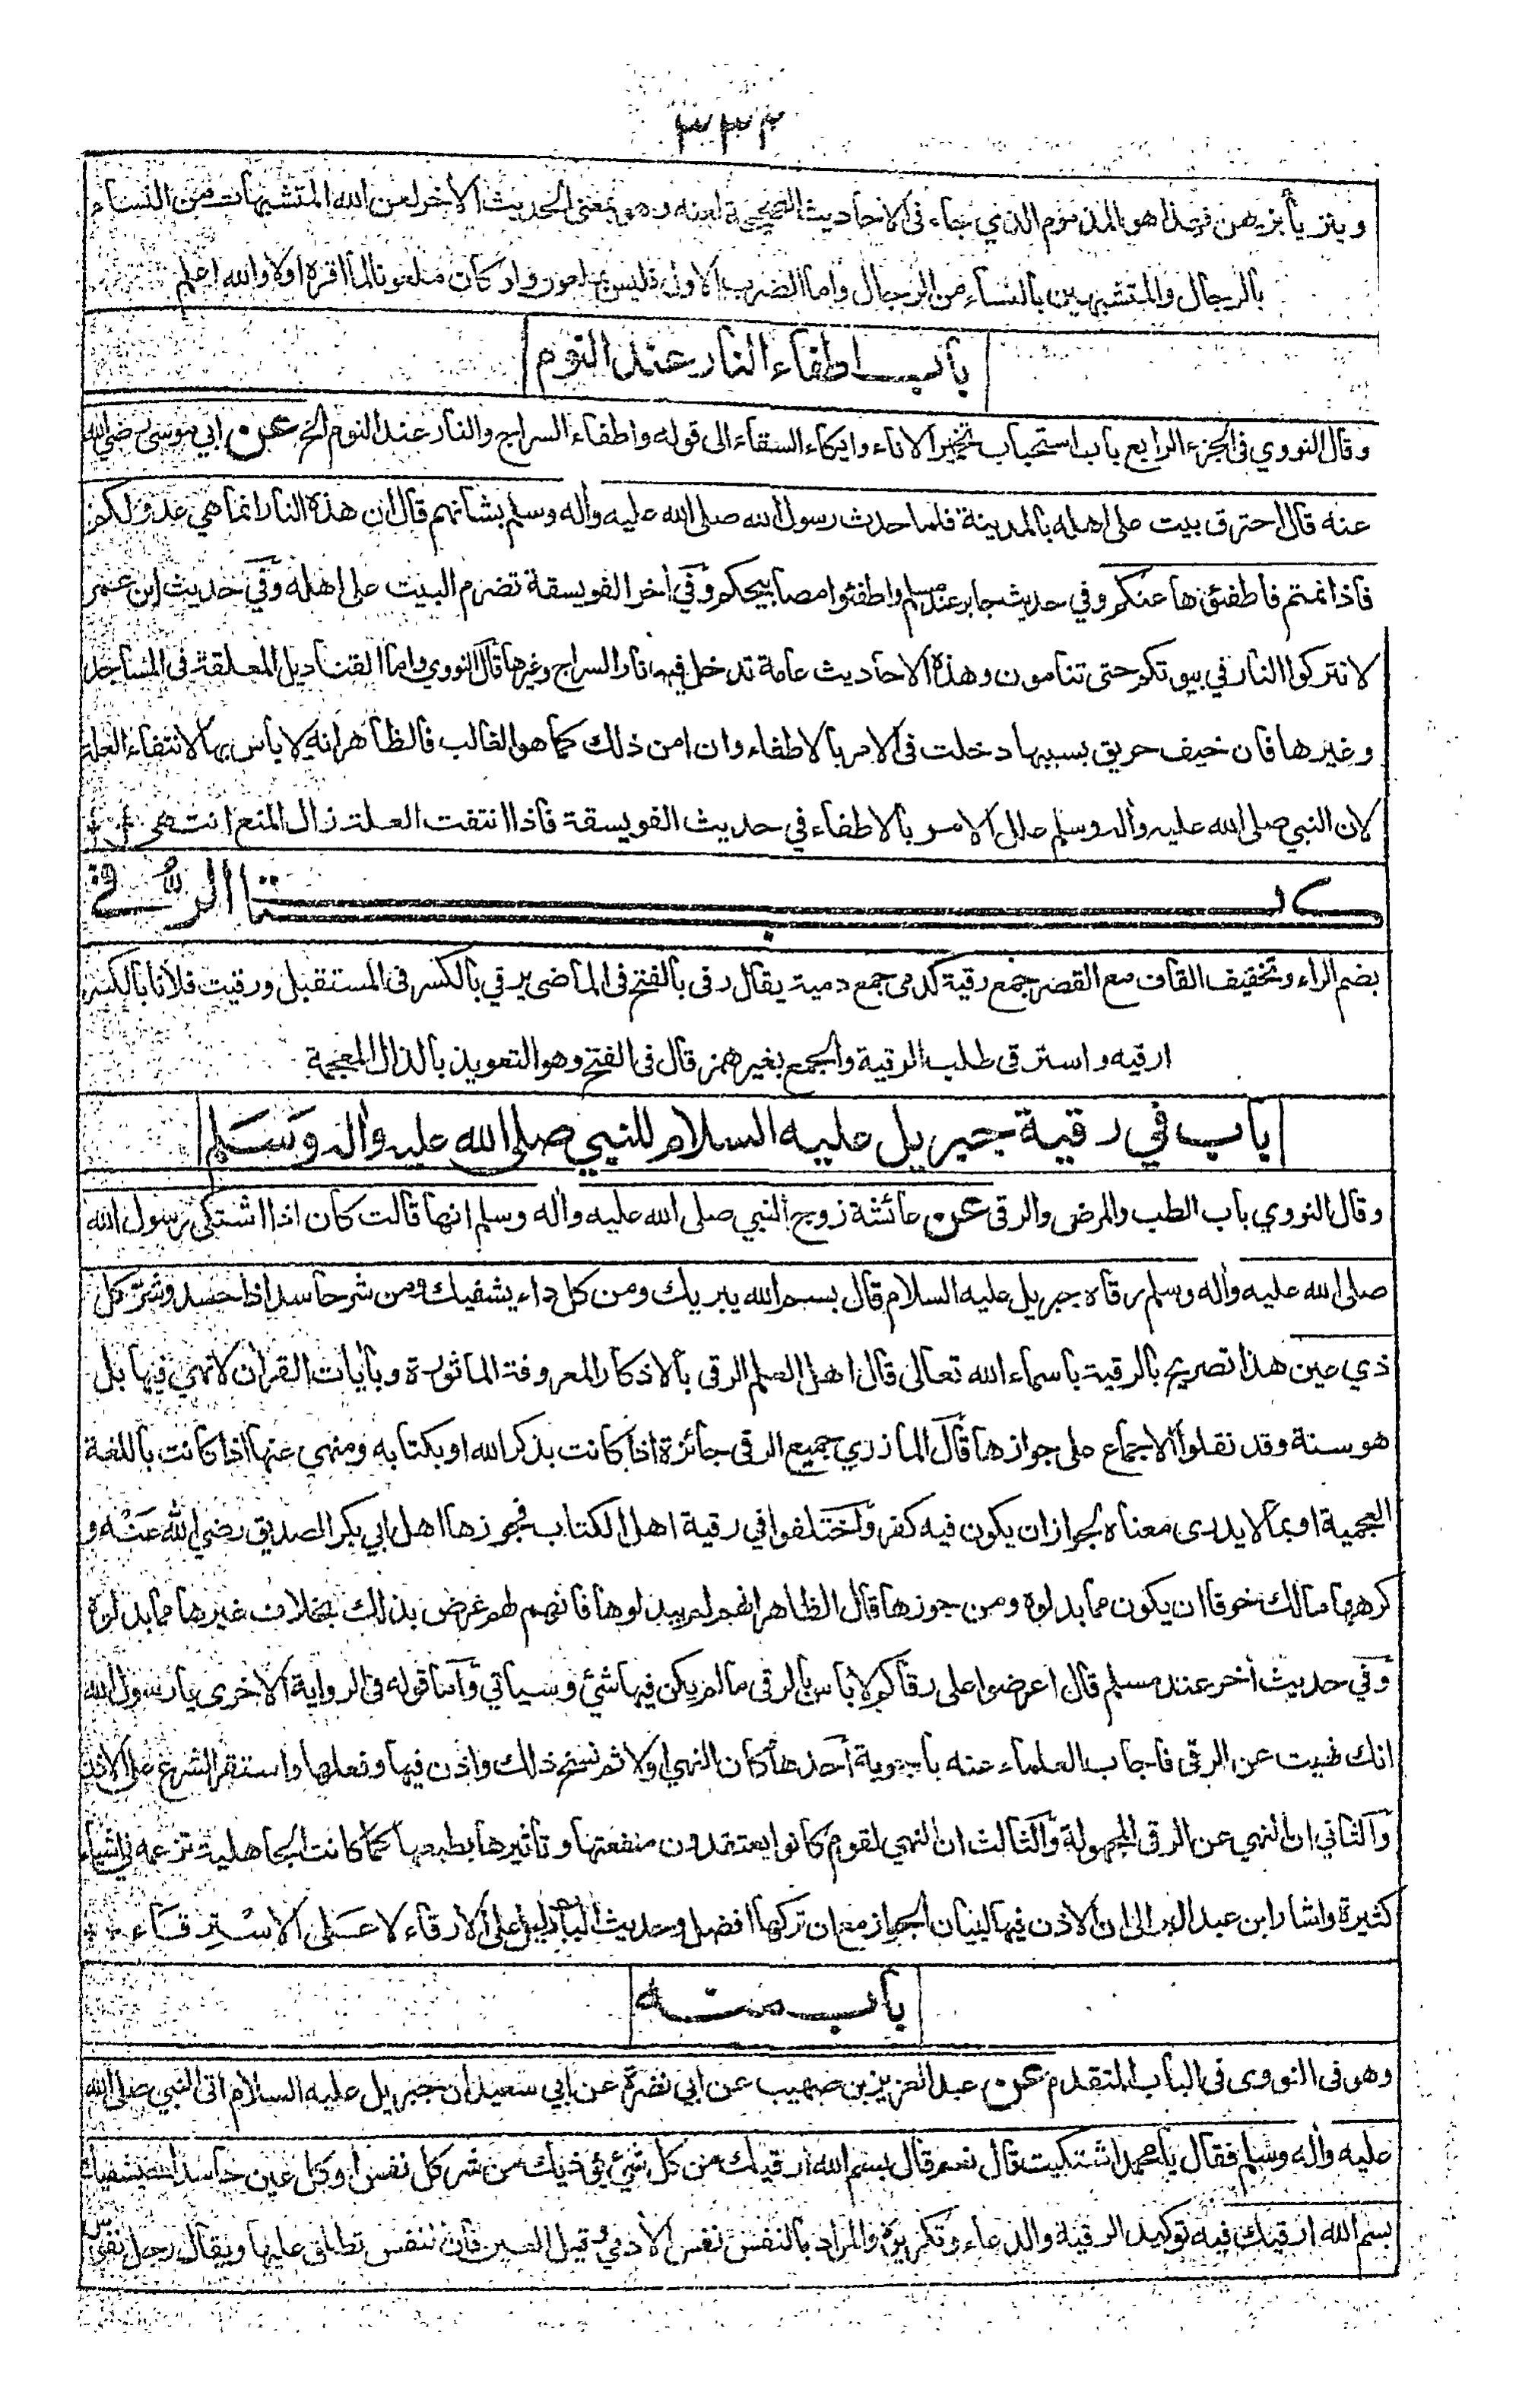 ٣٣٢
ويتزيأ بزيهن فهذا هو المذموم الذي جاء في الاحاديث الصحيحة لعنه وهو بمعنى الحديث الأخر لعن الله المتشبهات من النساء
بالرجال والمتشبهين بالنساء من الرجال واما الضرب الاول فليس بملعون ولو كان ملعونا لما اقره اولا والله اعلم
باب اطفاء النار عند النوم
وقال النووي في الجزء الرابع باب استحباب تخمير الاناء وايكاء السقاء الى قوله واطفاء السراج والنار عند النوم الخ عن ابي موسى رضي الله
عنه قال احترق بيت على اهله بالمدينة فلما حدث رسول الله صلى الله عليه وأله وسلم بشانهم قال ان هذه النار انما هي عدو لكم
فاذا نمتم فاطفئوها عنكم وفي حديث جابر عند مسلم واطفئوا مصابيحكم وفي أخر الفويسقة تضرم البيت على اهله وفي حديث ابن عمر
لا تتركوا النار في بيوتكم حتى تنامون وهذه الاحاديث عامة تدخل فيها نار السراج وغيرها قال النووي واما القناديل المعلقة في المساجد
وغيرها فان خيف حريق بسببها دخلت في الامر بالاطفاء وان امن ذلك كما هو الغالب فالظاهر انه لا باس بها لانتفاء العلة
لان النبي صلى الله عليه وأله وسلم علل الامر بالاطفاء في حديث الفويسقة فاذا انتفت العلة زال المنع انتهى
كتاب الرُّقى
بضم الراء وتخفيف القاف مع القصر جمع رقية كدمى جمع دمية يقال رقى بالفتح في الماضي يرقي بالكسر في المستقبل ورقيت فلانا بالكسر
ارقيه واسترقى طلب الرقية والجمع بغير همز قال في الفتح وهو التعويذ بالذال المعجمة
باب في رقية جبريل عليه السلام للنبي صلى الله عليه وأله وَسَلم
وقال النووي باب الطب والمرض والرقى عن عائشة زوج النبي صلى الله عليه وأله وسلم انها قالت كان اذا اشتكى رسول الله
صلى الله عليه وأله وسلم رقاه جبريل عليه السلام قال بسم الله يبريك ومن كل داء يشفيك ومن شر حاسد اذا حسد وشر كل
ذي عين هذا تصريح بالرقية باسماء الله تعالى قال اهل العلم الرقى بالاذكار المعروفة الماثورة وبأيات القرأن لا نهي فيها بل
هو سنة وقد نقلوا الاجماع على جوازها قال المازري جميع الرقى جائزة اذا كانت بذكر الله او بكتابه ومنهى عنها اذا كانت باللغة
العجمية او بما لا يدرى معناه لجواز ان يكون فيه كفر واختلفوا في رقية اهل الكتاب فجوزها اهل ابي بكر الصديق رضي الله عَنْه و
كرهها مالك خوفا ان يكون مما بدلوه ومن جوزها قال الظاهر انهم لم يبدلوها فانهم لهم غرض بذلك بخلاف غيرها مما بدلوه
وفي حديث أخر عند مسلم قال اعرضوا على رقاكم لا باس بالرقى ما لم يكن فيها شئ وسياتي واما قوله في الرواية الاخرى يا رسول الله
انك نهيت عن الرقى فاجاب العلماء عنه باجوبة احدها كان النهي اولا ثم نسخ ذلك واذن فيها وفعلها واستقر الشرع على الاذن
والثاني ان النهي عن الرقى المجهولة والثالث ان النهي لقوم كانوا يعتقدون منفعتها وتأثيرها بطبعها كما كانت الجاهلية تزعمه في اشياء
كثيرة واشار ابن عبد البر الى ان الاذن فيها لبيان الجواز مع ان تركها افضل وحديث الباب دليل على الارقاء لا عَلى الاسْتِرقَاء
باب منه
وهو في النووي في الباب المتقدم عن عبد العزيز بن صهيب عن ابي نضرة عن ابي سعيد ان جبريل عليه السلام اتى النبي صلى الله
عليه وأله وسلم فقال يا محمد اشتكيت قال نعم قال بسم الله ارقيك من كل شئ يؤذيك من شر كل نفس او كل عين حاسد الله يشفيك
بسم الله ارقيك فيه توكيد الرقية والدعاء وتكريره والمراد بالنفس نفس الأدمي وقيل العين فان النفس تطلق عليها ويقال رجل نفوس